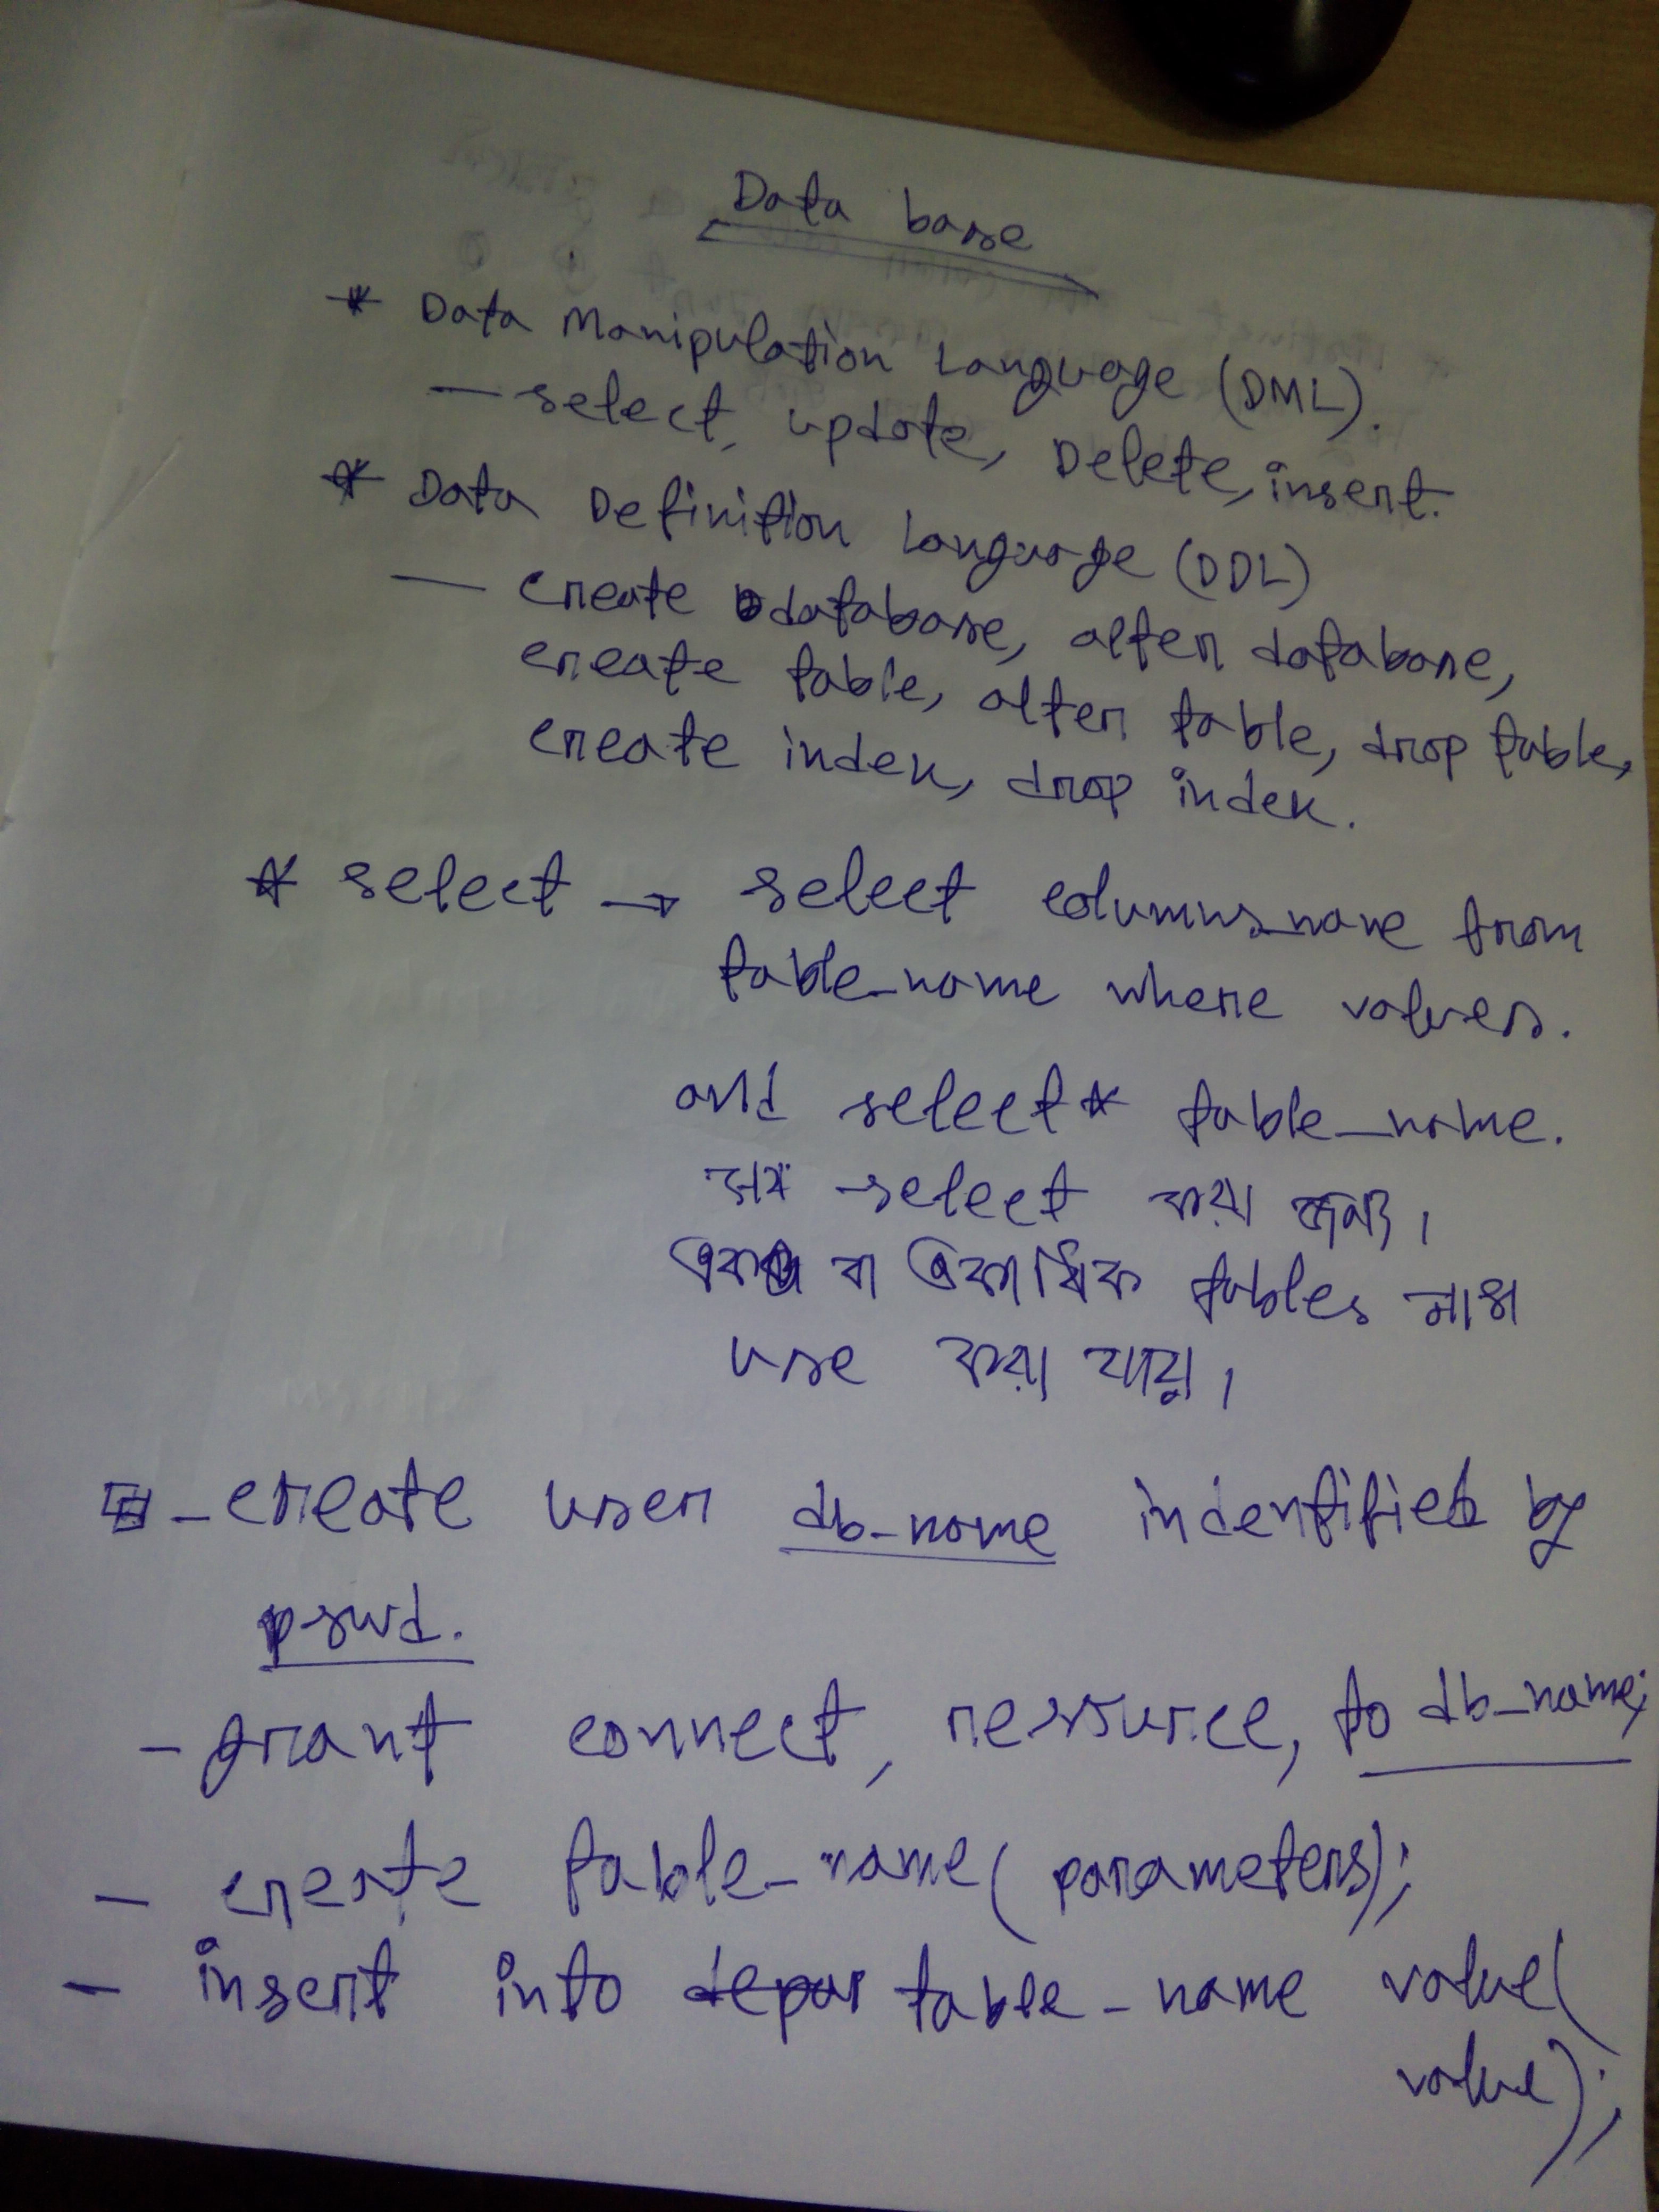 Data base
* Data Manipulation Language (DML).
— select, update, Delete, insert.
* Data Definition Language (DDL)
— create database, alter database,
create table, alter table, drop table,
create index, drop index.
* select → select columns_name from
table_name where values.
and select * table_name.
select করা জন্য।
বা একাধিক tables
use করা যায়।
- create user db_name indentified by
pswd.
- grant connect, ressource, to db_name;
- create table_name (parameters);
- insert into depar table_name value(
value);